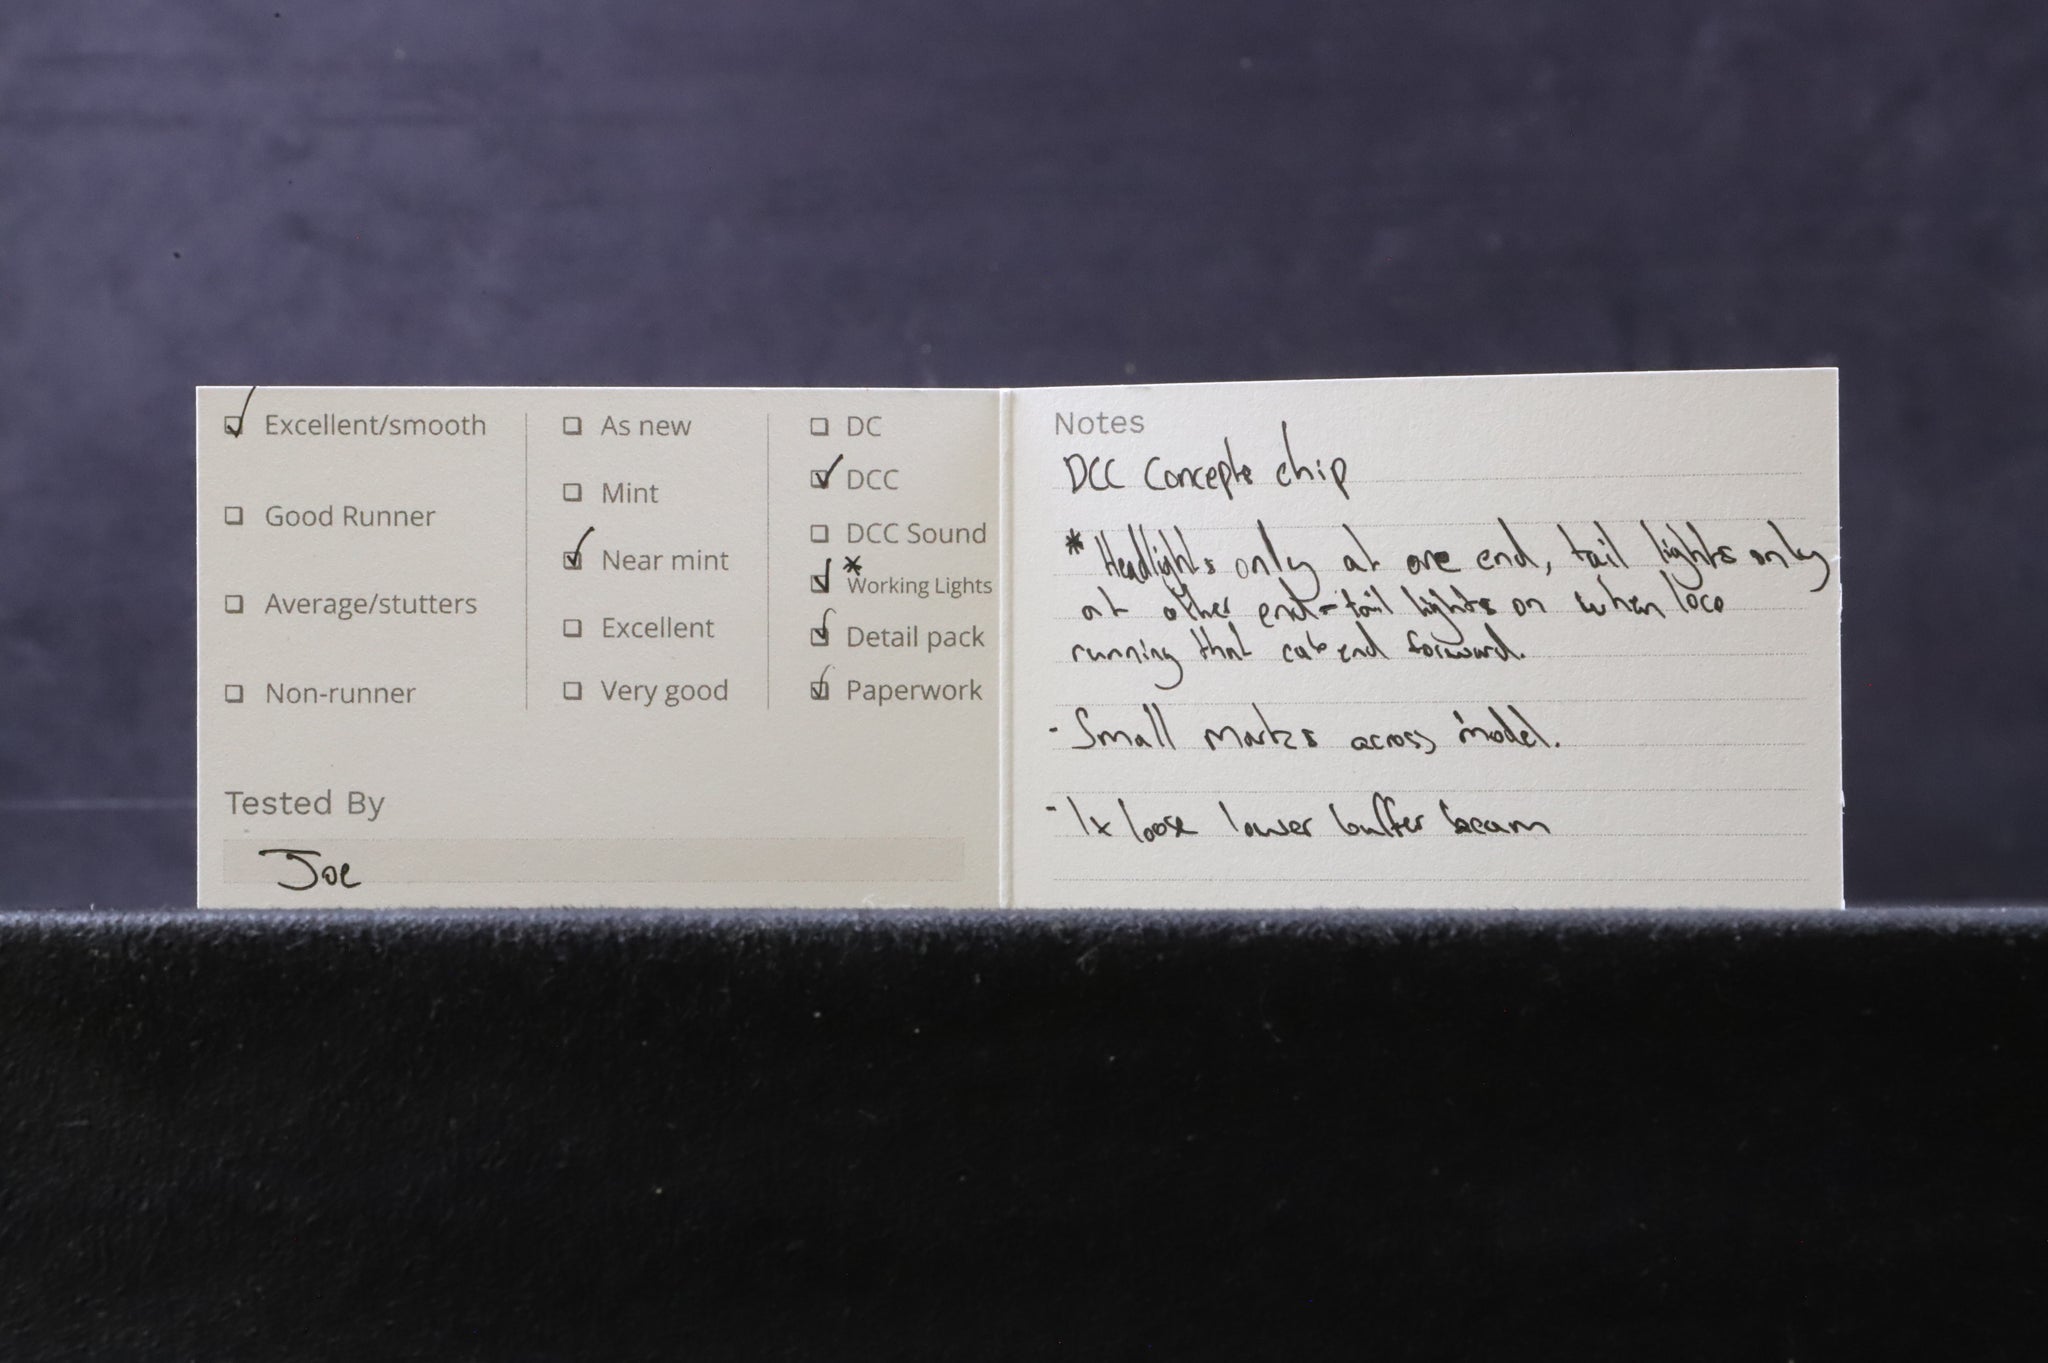 Excellent/smooth
Good Runner
Average/stutters
Non-runner
As new
Mint
Near mint
Excellent
Very good
DC
DCC
DCC Sound
*
Working Lights
Detail pack
Paperwork
Tested By
Joe
Notes
DCC Concepts chip
* Headlights only at one end, tail lights only
at other end - tail lights on when loco
running that cab end forward.
- Small marks across model.
- 1x loose lower buffer beam